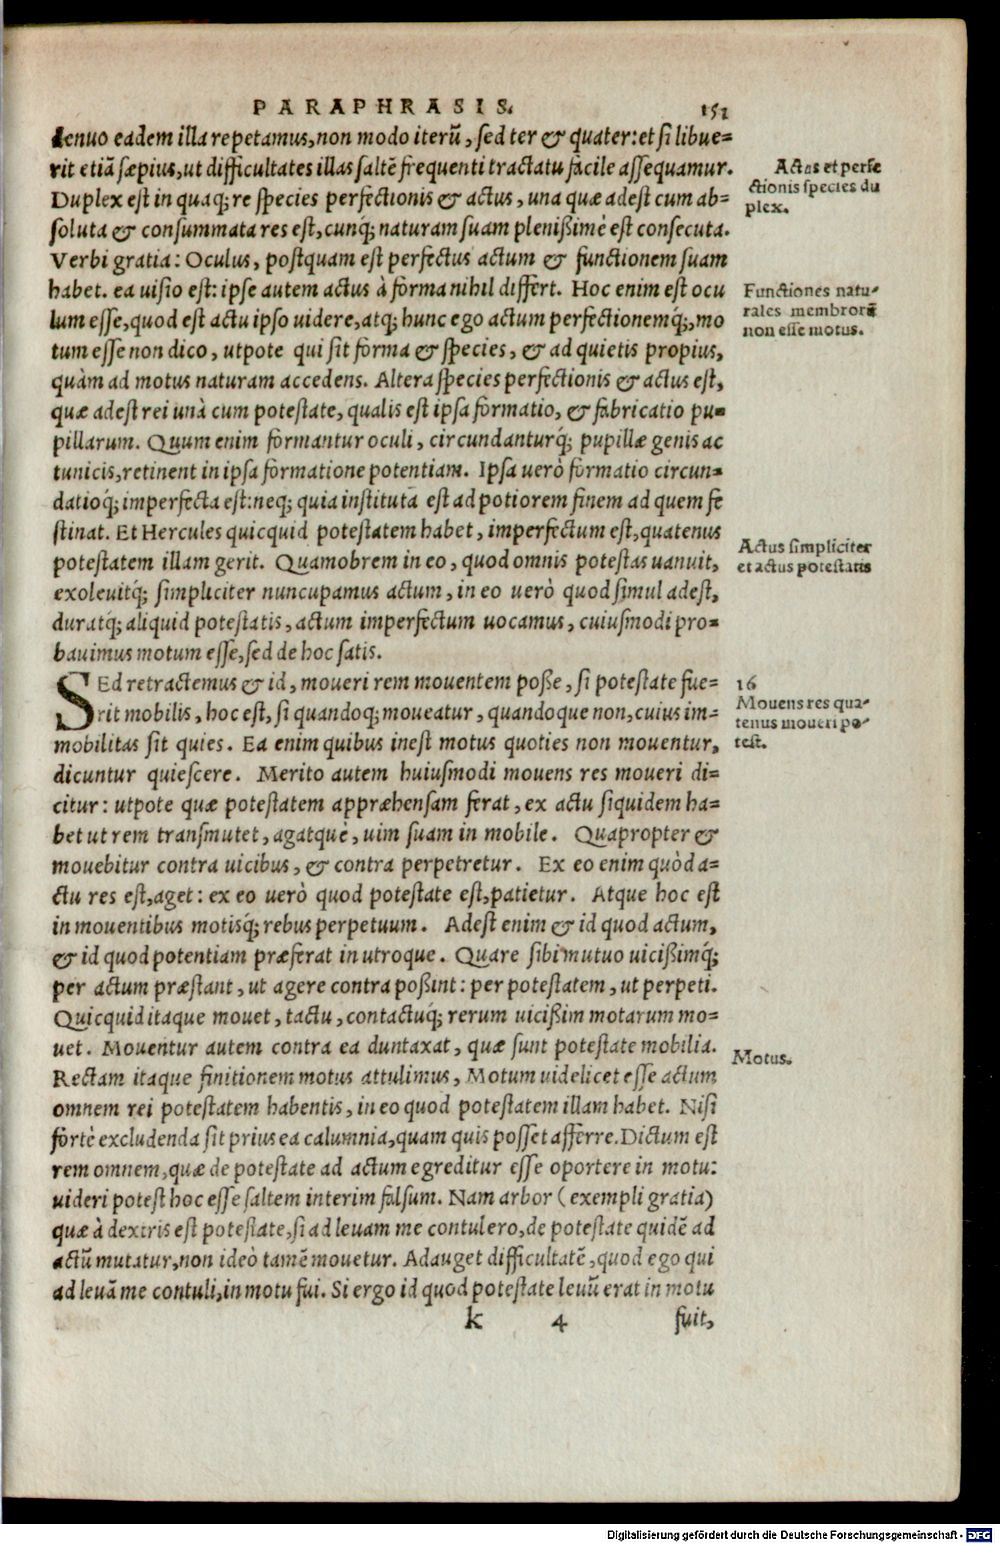 PARAPHRASIS. 151
denuo eadem illa repetamus, non modo iterũ, sed ter & quater: et si libue=
rit etiã sæpius, ut difficultates illas saltẽ frequenti tractatu facile assequamur.
Duplex est in quaq; re species perfectionis & actus, una quæ adest cum ab=
soluta & consummata res est, cunq́; naturam suam plenißimè est consecuta.
Verbi gratia: Oculus, postquam est perfectus actum & functionem suam
habet. ea uisio est: ipse autem actus à forma nihil differt. Hoc enim est ocu
lum esse, quod est actu ipso uidere, atq; hunc ego actum perfectionemq́;, mo
tum esse non dico, utpote qui sit forma & species, & ad quietis propius,
quàm ad motus naturam accedens. Altera species perfectionis & actus est,
quæ adest rei unà cum potestate, qualis est ipsa formatio, & fabricatio pu=
pillarum. Quum enim formantur oculi, circundanturq́; pupillæ genis ac
tunicis, retinent in ipsa formatione potentiam. Ipsa uerò formatio circun=
datioq́; imperfecta est: neq; quia instituta est ad potiorem finem ad quem fe
stinat. Et Hercules quicquid potestatem habet, imperfectum est, quatenus
potestatem illam gerit. Quamobrem in eo, quod omnis potestas uanuit,
exoleuitq́; simpliciter nuncupamus actum, in eo uerò quod simul adest,
duratq́; aliquid potestatis, actum imperfectum uocamus, cuiusmodi pro=
bauimus motum esse, sed de hoc satis.
SEd retractemus & id, moueri rem mouentem poße, si potestate fue=
rit mobilis, hoc est, si quandoq; moueatur, quandoque non, cuius im=
mobilitas sit quies. Ea enim quibus inest motus quoties non mouentur,
dicuntur quiescere. Merito autem huiusmodi mouens res moueri di=
citur: utpote quæ potestatem appræhensam ferat, ex actu siquidem ha=
bet ut rem transmutet, agatquè, uim suam in mobile. Quapropter &
mouebitur contra uicibus, & contra perpetretur. Ex eo enim quòd a=
ctu res est, aget: ex eo uerò quod potestate est, patietur. Atque hoc est
in mouentibus motisq́; rebus perpetuum. Adest enim & id quod actum,
& id quod potentiam præferat in utroque. Quare sibi mutuo uicißimq́;
per actum præstant, ut agere contra poßint: per potestatem, ut perpeti.
Quicquid itaque mouet, tactu, contactuq́; rerum uicißim motarum mo=
uet. Mouentur autem contra ea duntaxat, quæ sunt potestate mobilia.
Rectam itaque finitionem motus attulimus, Motum uidelicet esse actum
omnem rei potestatem habentis, in eo quod potestatem illam habet. Nisi
fortè excludenda sit prius ea calumnia, quam quis posset afferre. Dictum est
rem omnem, quæ de potestate ad actum egreditur esse oportere in motu:
uideri potest hoc esse saltem interim falsum. Nam arbor (exempli gratia)
quæ à dextris est potestate, si ad leuam me contulero, de potestate quidẽ ad
actũ mutatur, non ideò tamẽ mouetur. Adauget difficultatẽ, quod ego qui
ad leuã me contuli, in motu fui. Si ergo id quod potestate leuũ erat in motu
k 4 fuit,
Actus et perfe
ctionis species du
plex.
Functiones natu-
rales membrorũ
non esse motus.
Actus simpliciter
et actus potestatis
16
Mouens res qua-
tenus moueri po-
test.
Motus.
Digitalisierung gefördert durch die Deutsche Forschungsgemeinschaft - DFG